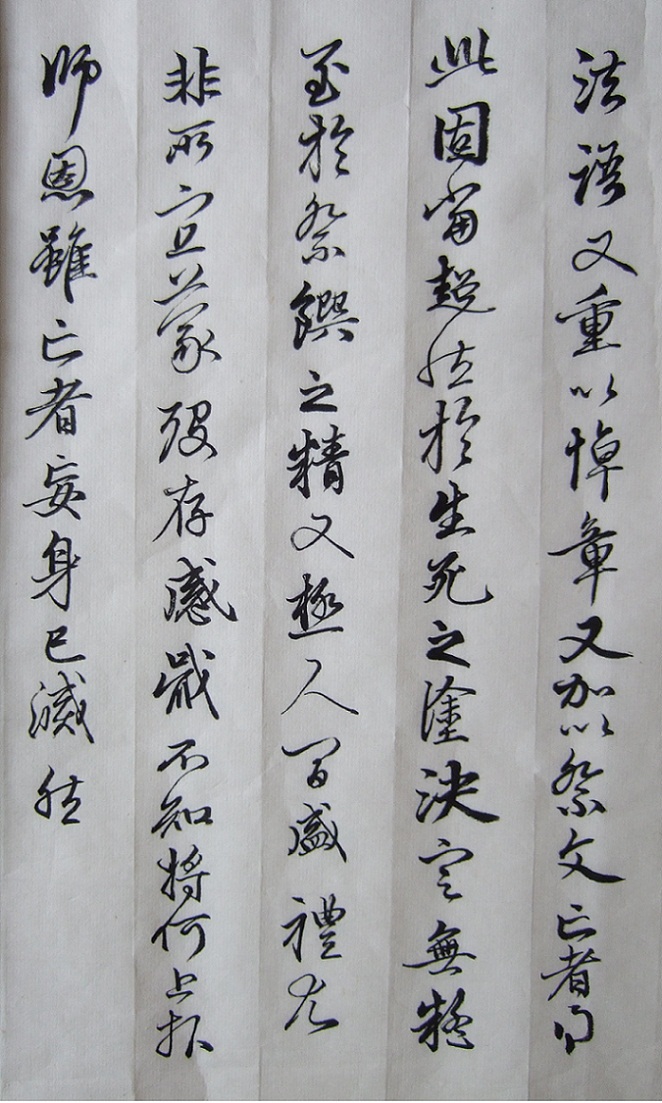 法語又重以悼章又加以祭文亡者得
此固當超然於生死之塗決定無疑
至於祭饌之精又極人間盛禮尤
非所宜蒙歿存感戢不知將何上報
師恩雖亡者妄身已滅然